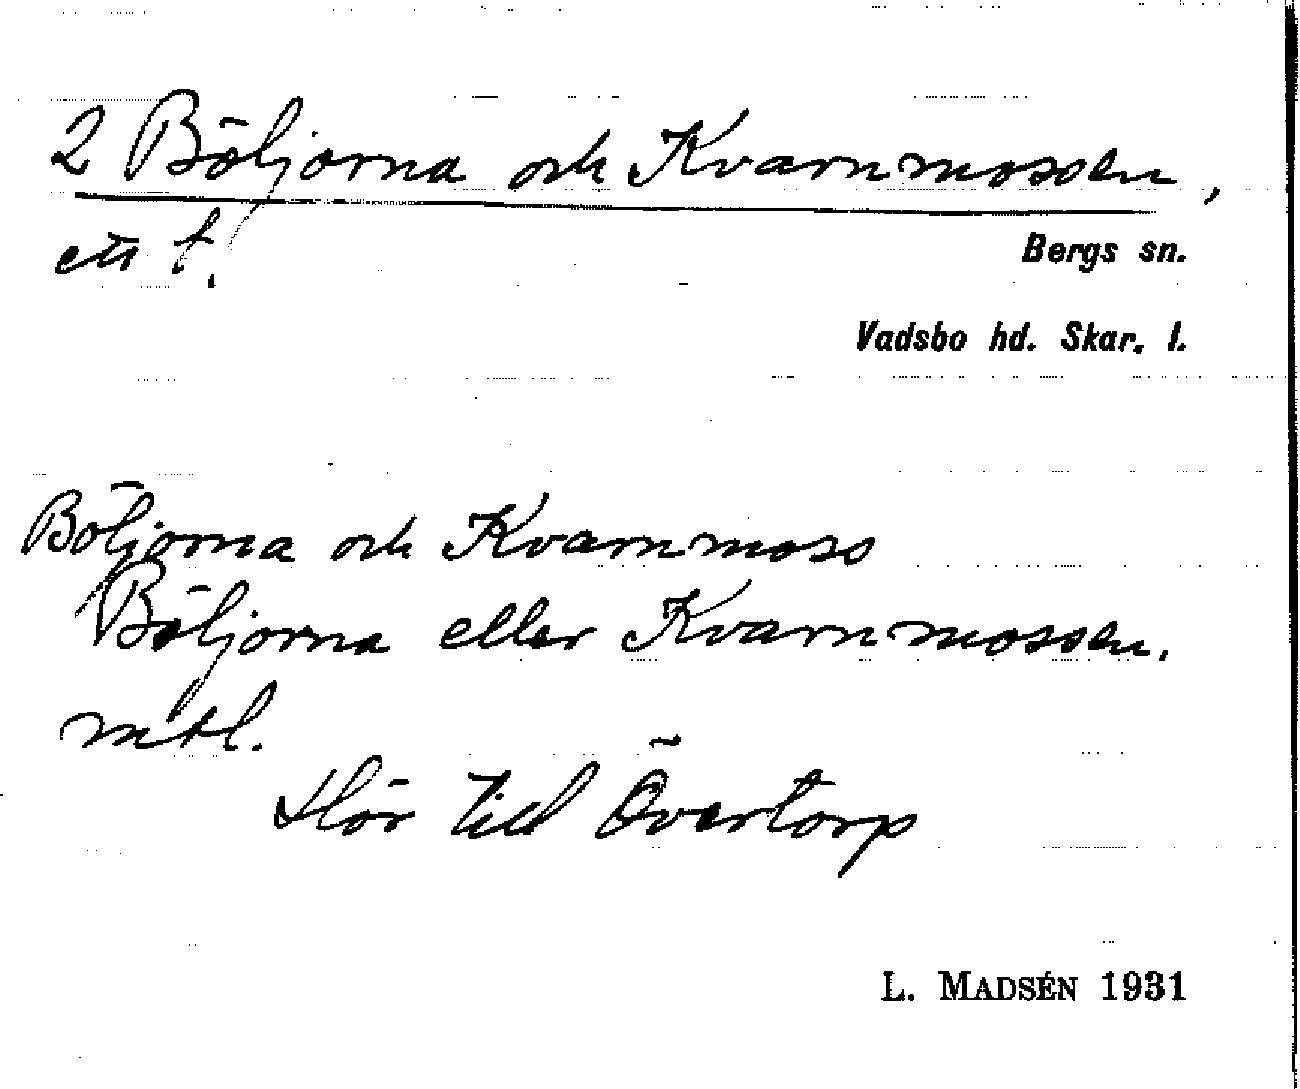 2 Böljorna och Kvarnmossen,
ett t.
Bergs sn.
Vadsbo hd. Skar. l.
Böljorna och Kvarnmoss
Böljorna eller Kvarnmossen.
mtl.
Hör till Övertorp
L. MADSÉN 1931